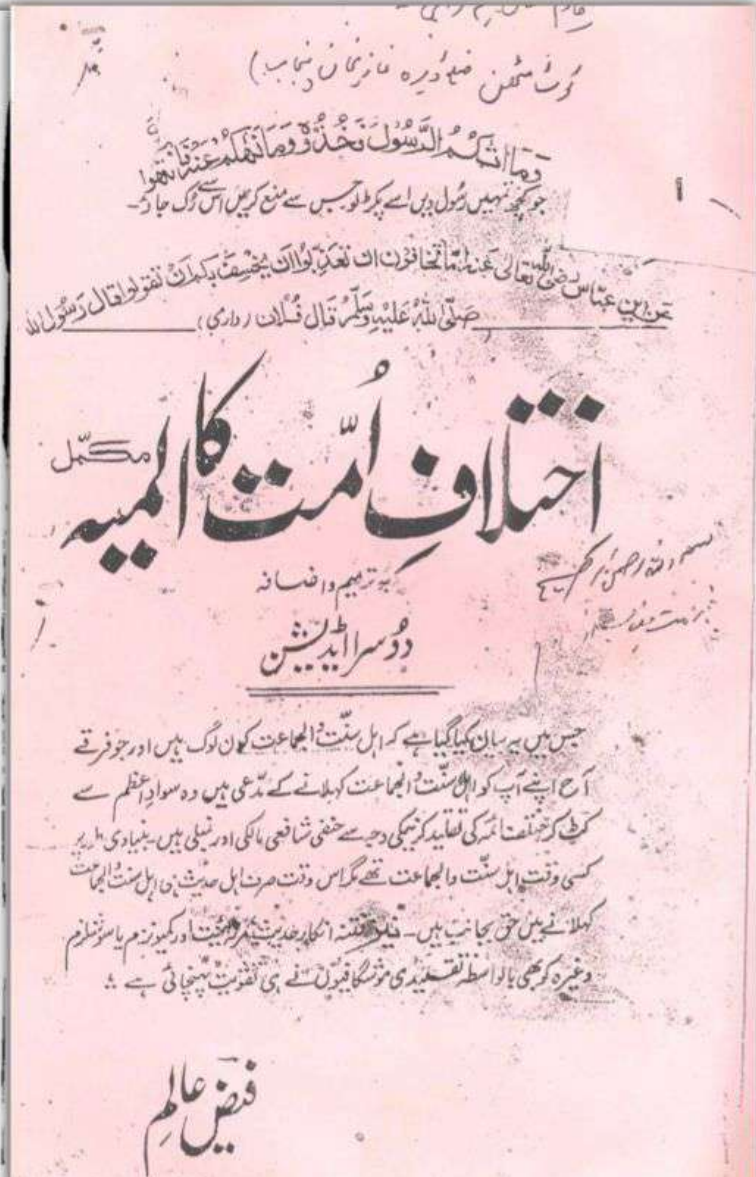 کوٹ مٹھن ضلع ڈیرہ غازیخان پنجاب)
وَمَا اٰتٰكُمُ الرَّسُوْلُ فَخُذُوْهُ وَمَا نَهٰكُمْ عَنْهُ فَانْتَهُوْا
جو کچھ تمہیں رسُول دیں اسے پکڑ لو جس سے منع کریں اس سے رُک جاؤ۔
عَن ابن عبّاس رضی اللہ تعالیٰ عَنہ اَمَا تخافون ان تعذبوا او یخسف بکم ان تقولوا قال رَسُول اللہ
صَلّی اللہُ عَلَیْہِ وَسَلَّمْ قَال فُلان (دارمی)
اختلافِ اُمّت کا المیہ
مکمّل
بہ ترمیم و اضافہ
بسم اللہ الرحمن الرحیم
دوُسرا ایڈیشن
جس میں یہ بیان کیا گیا ہے کہ اہل سنّت و الجماعت کون لوگ ہیں اور جو فرقے
آج اپنے آپ کو اہل سنّت و الجماعت کہلانے کے مدّعی ہیں وہ سوادِ اعظم سے
کٹ کر مختلف ائمہ کی تقلید کرنیکی وجہ سے حنفی شافعی مالکی اور حنبلی ہیں۔ بنیادی طور پر
کسی وقت اہل سنّت والجماعت تھے مگر اس وقت صرف اہل حدیث ہی اہل سنت والجماعت
کہلانے میں حق بجانب ہیں۔ نیز فتنہ انکارِ حدیث مرزائیت اور کمیونزم یا سوشلزم
وغیرہ کو بھی بالواسطہ تقلیدی موشگافیوں نے ہی تقویت پہنچائی ہے
فیض عالم